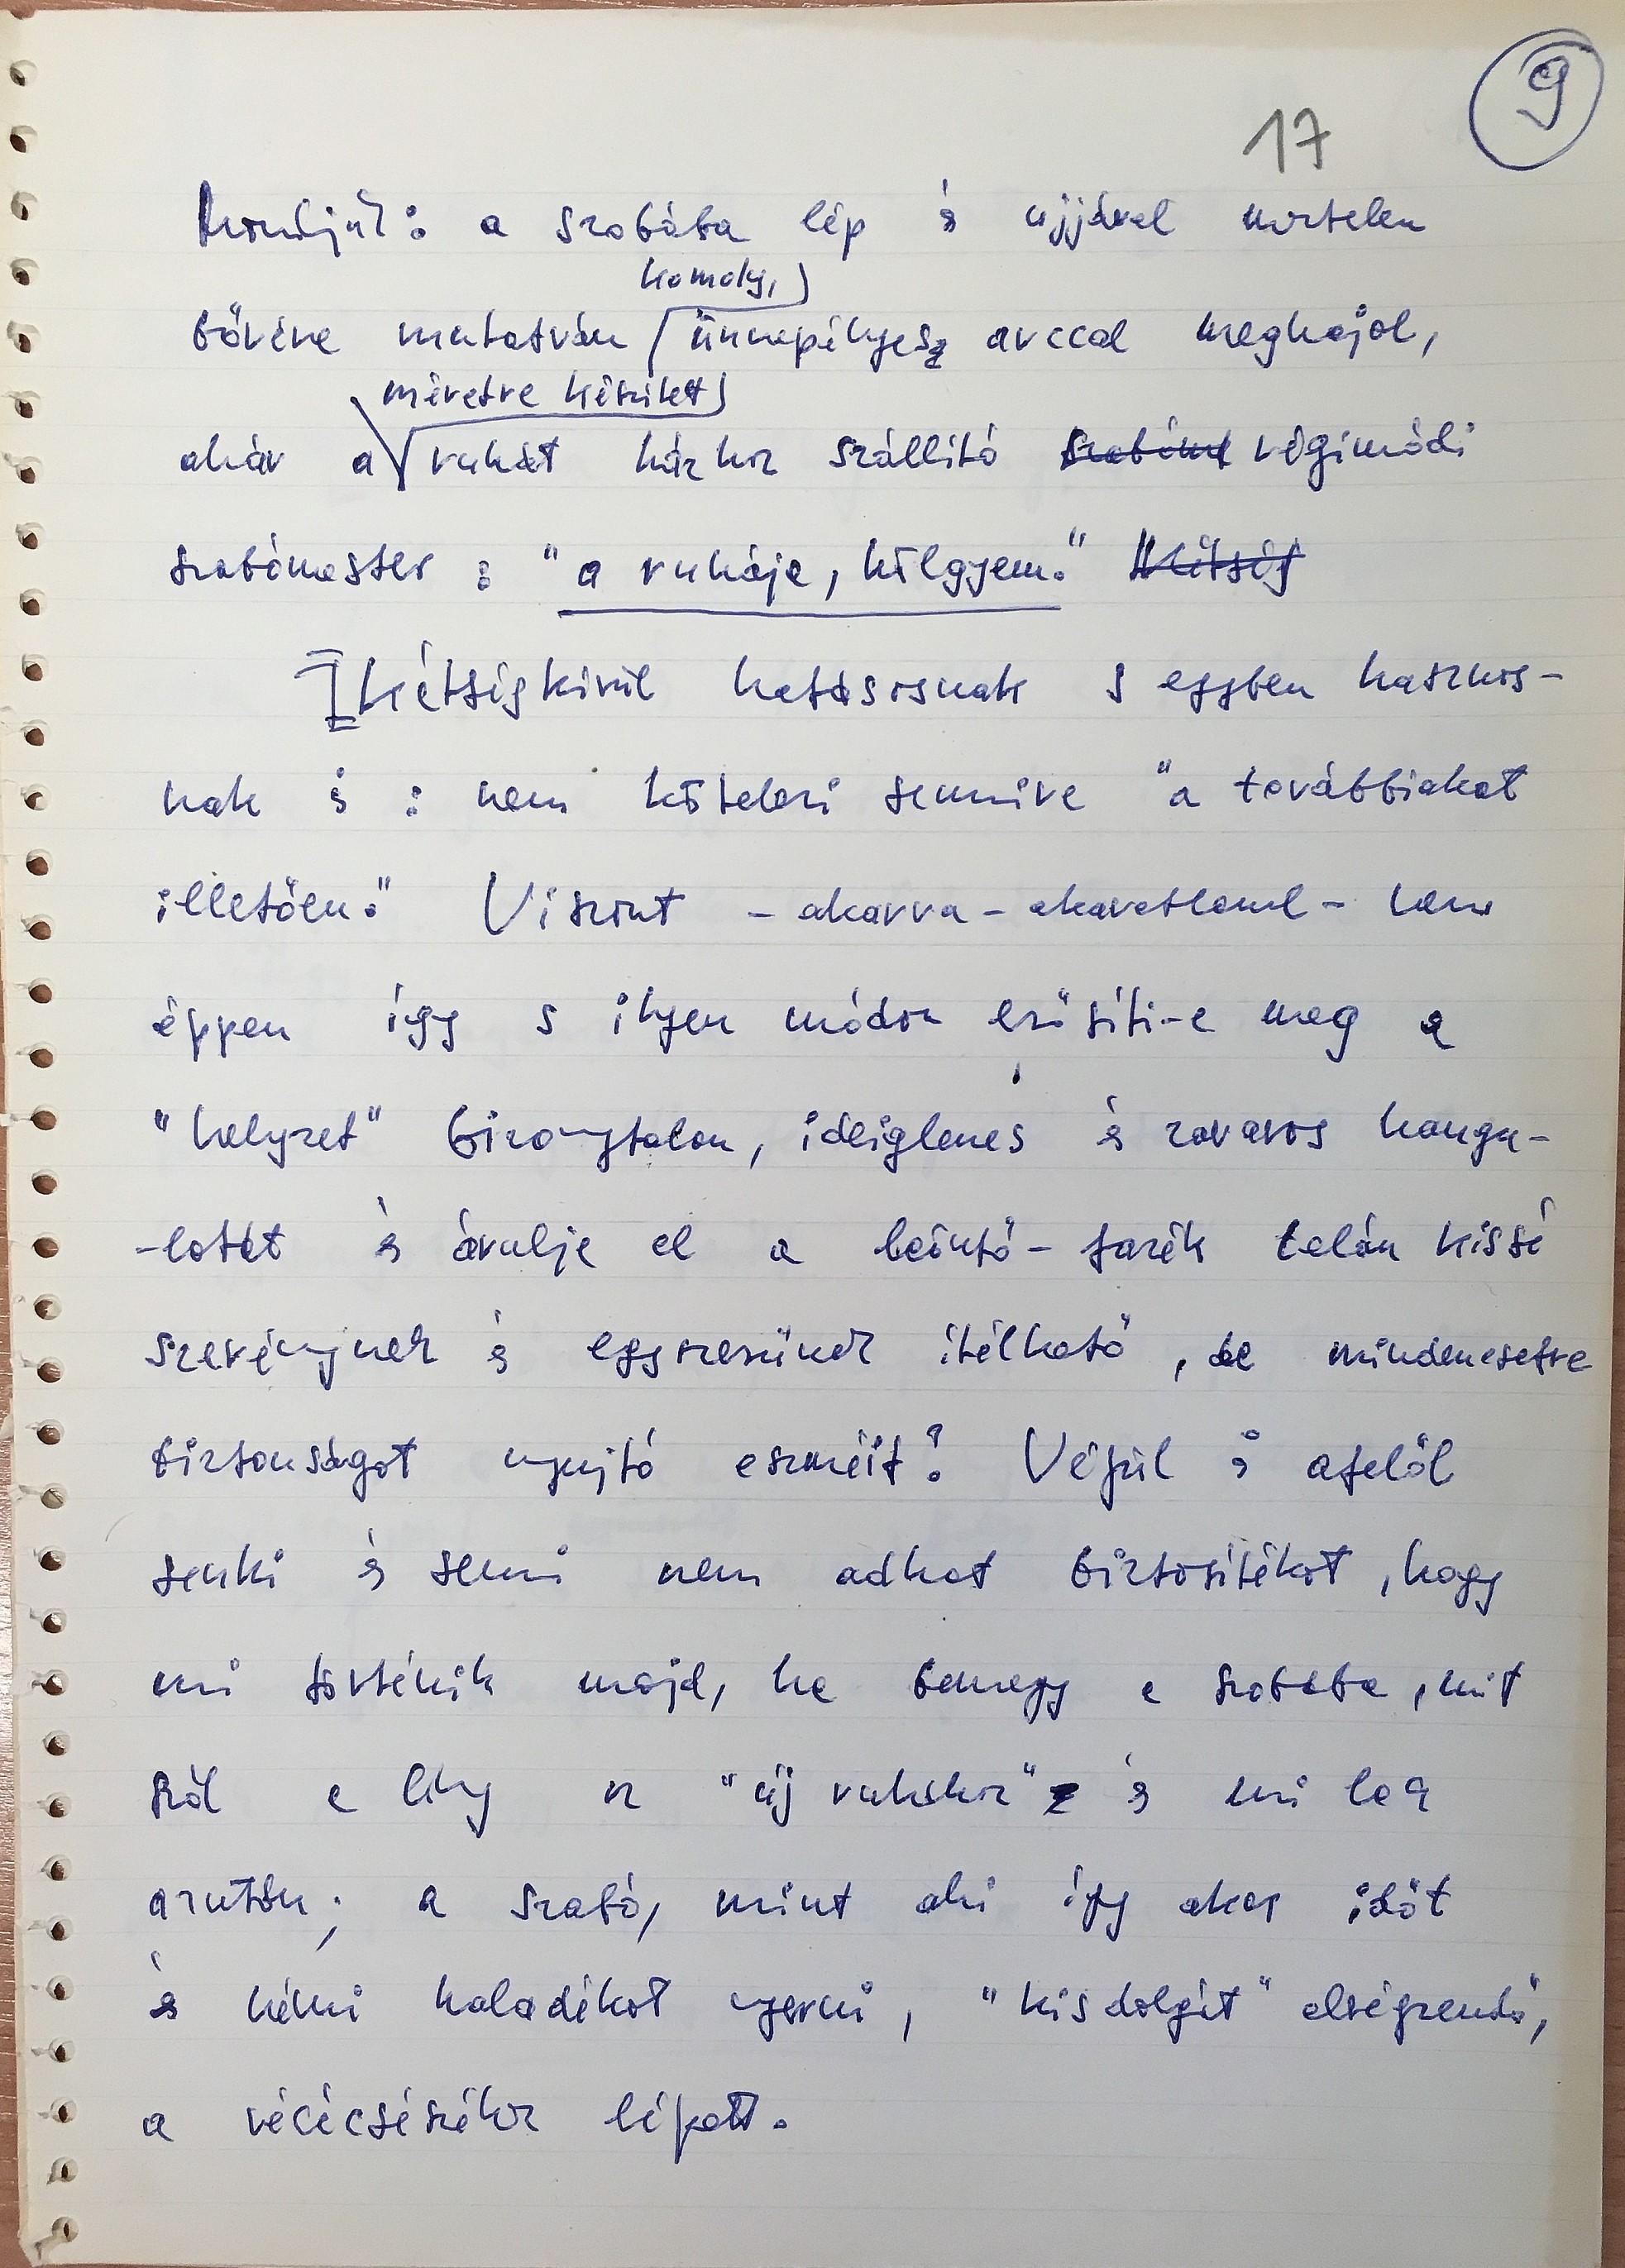 9
17
mondjuk: a szobába lép s ujjával meztelen
komoly,
bőrére mutatván ünnepélyes arccal meghajol,
méretre készített
akár a ruhát házhoz szállító szabóme régimódi
szabómester: "a ruhája, hölgyem." Kétség
Kétségkívül hatásosnak s egyben hasznos-
nak is: nem kötelezi semmire "a továbbiakat
illetően." Viszont - akarva-akaratlanul - nem
éppen így s ilyen módon erősíti-e meg a
"helyzet" bizonytalan, ideiglenes és zavaros hangu-
-latát és árulja el a beöntő-fazék talán kissé
szerénynek és egyszerűnek ítélhető, de mindenesetre
biztonságot nyujtó eszméit? Végül is afelől
senki és semmi nem adhat biztosítékot, hogy
mi történik majd, ha bemegy a szobába, mit
szól a lány az "új ruhához" és mi lesz
azután; a szabó, mint aki így akar időt
és némi haladékot nyerni, "kisdolgát" elvégzendő,
a vécécsészéhez lépett.